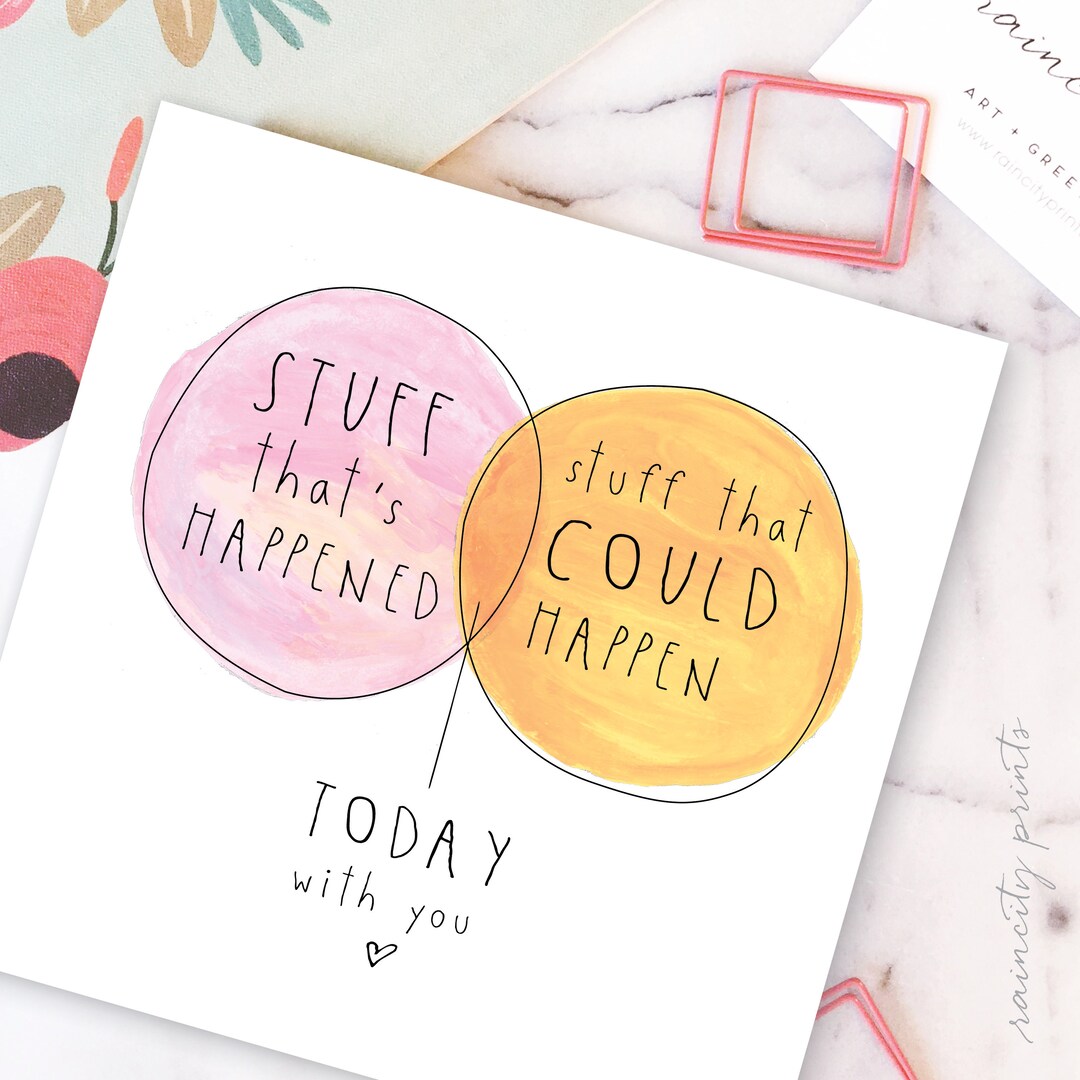 ART + GREE
www.raincityprint
STUFF
that's
HAPPENED
stuff that
COULD
HAPPEN
TODAY
with you
raincity prints